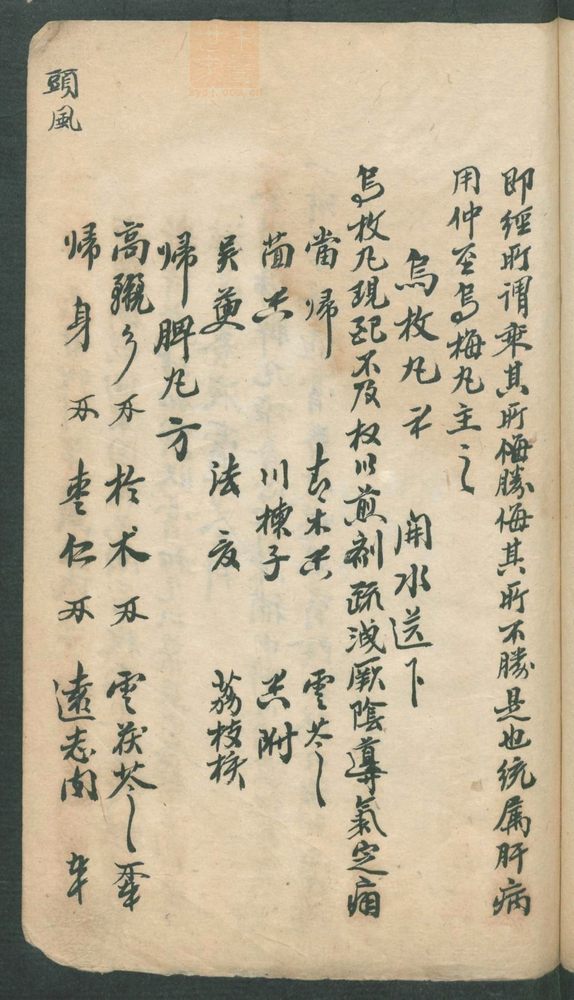 即經所謂乘其所侮勝侮其所不勝是也統属肝病
用仲至烏梅丸主之
烏枚丸 開水送下
烏枚丸現配不及权以煎劑疏洩厥陰導氣定痛
當歸 木香 雲苓
茴香 川楝子 香附
吳萸 法夏 荔枝核
歸脾丸方
高麗 於术 雲茯苓
歸身 枣仁 遠志肉
頭風